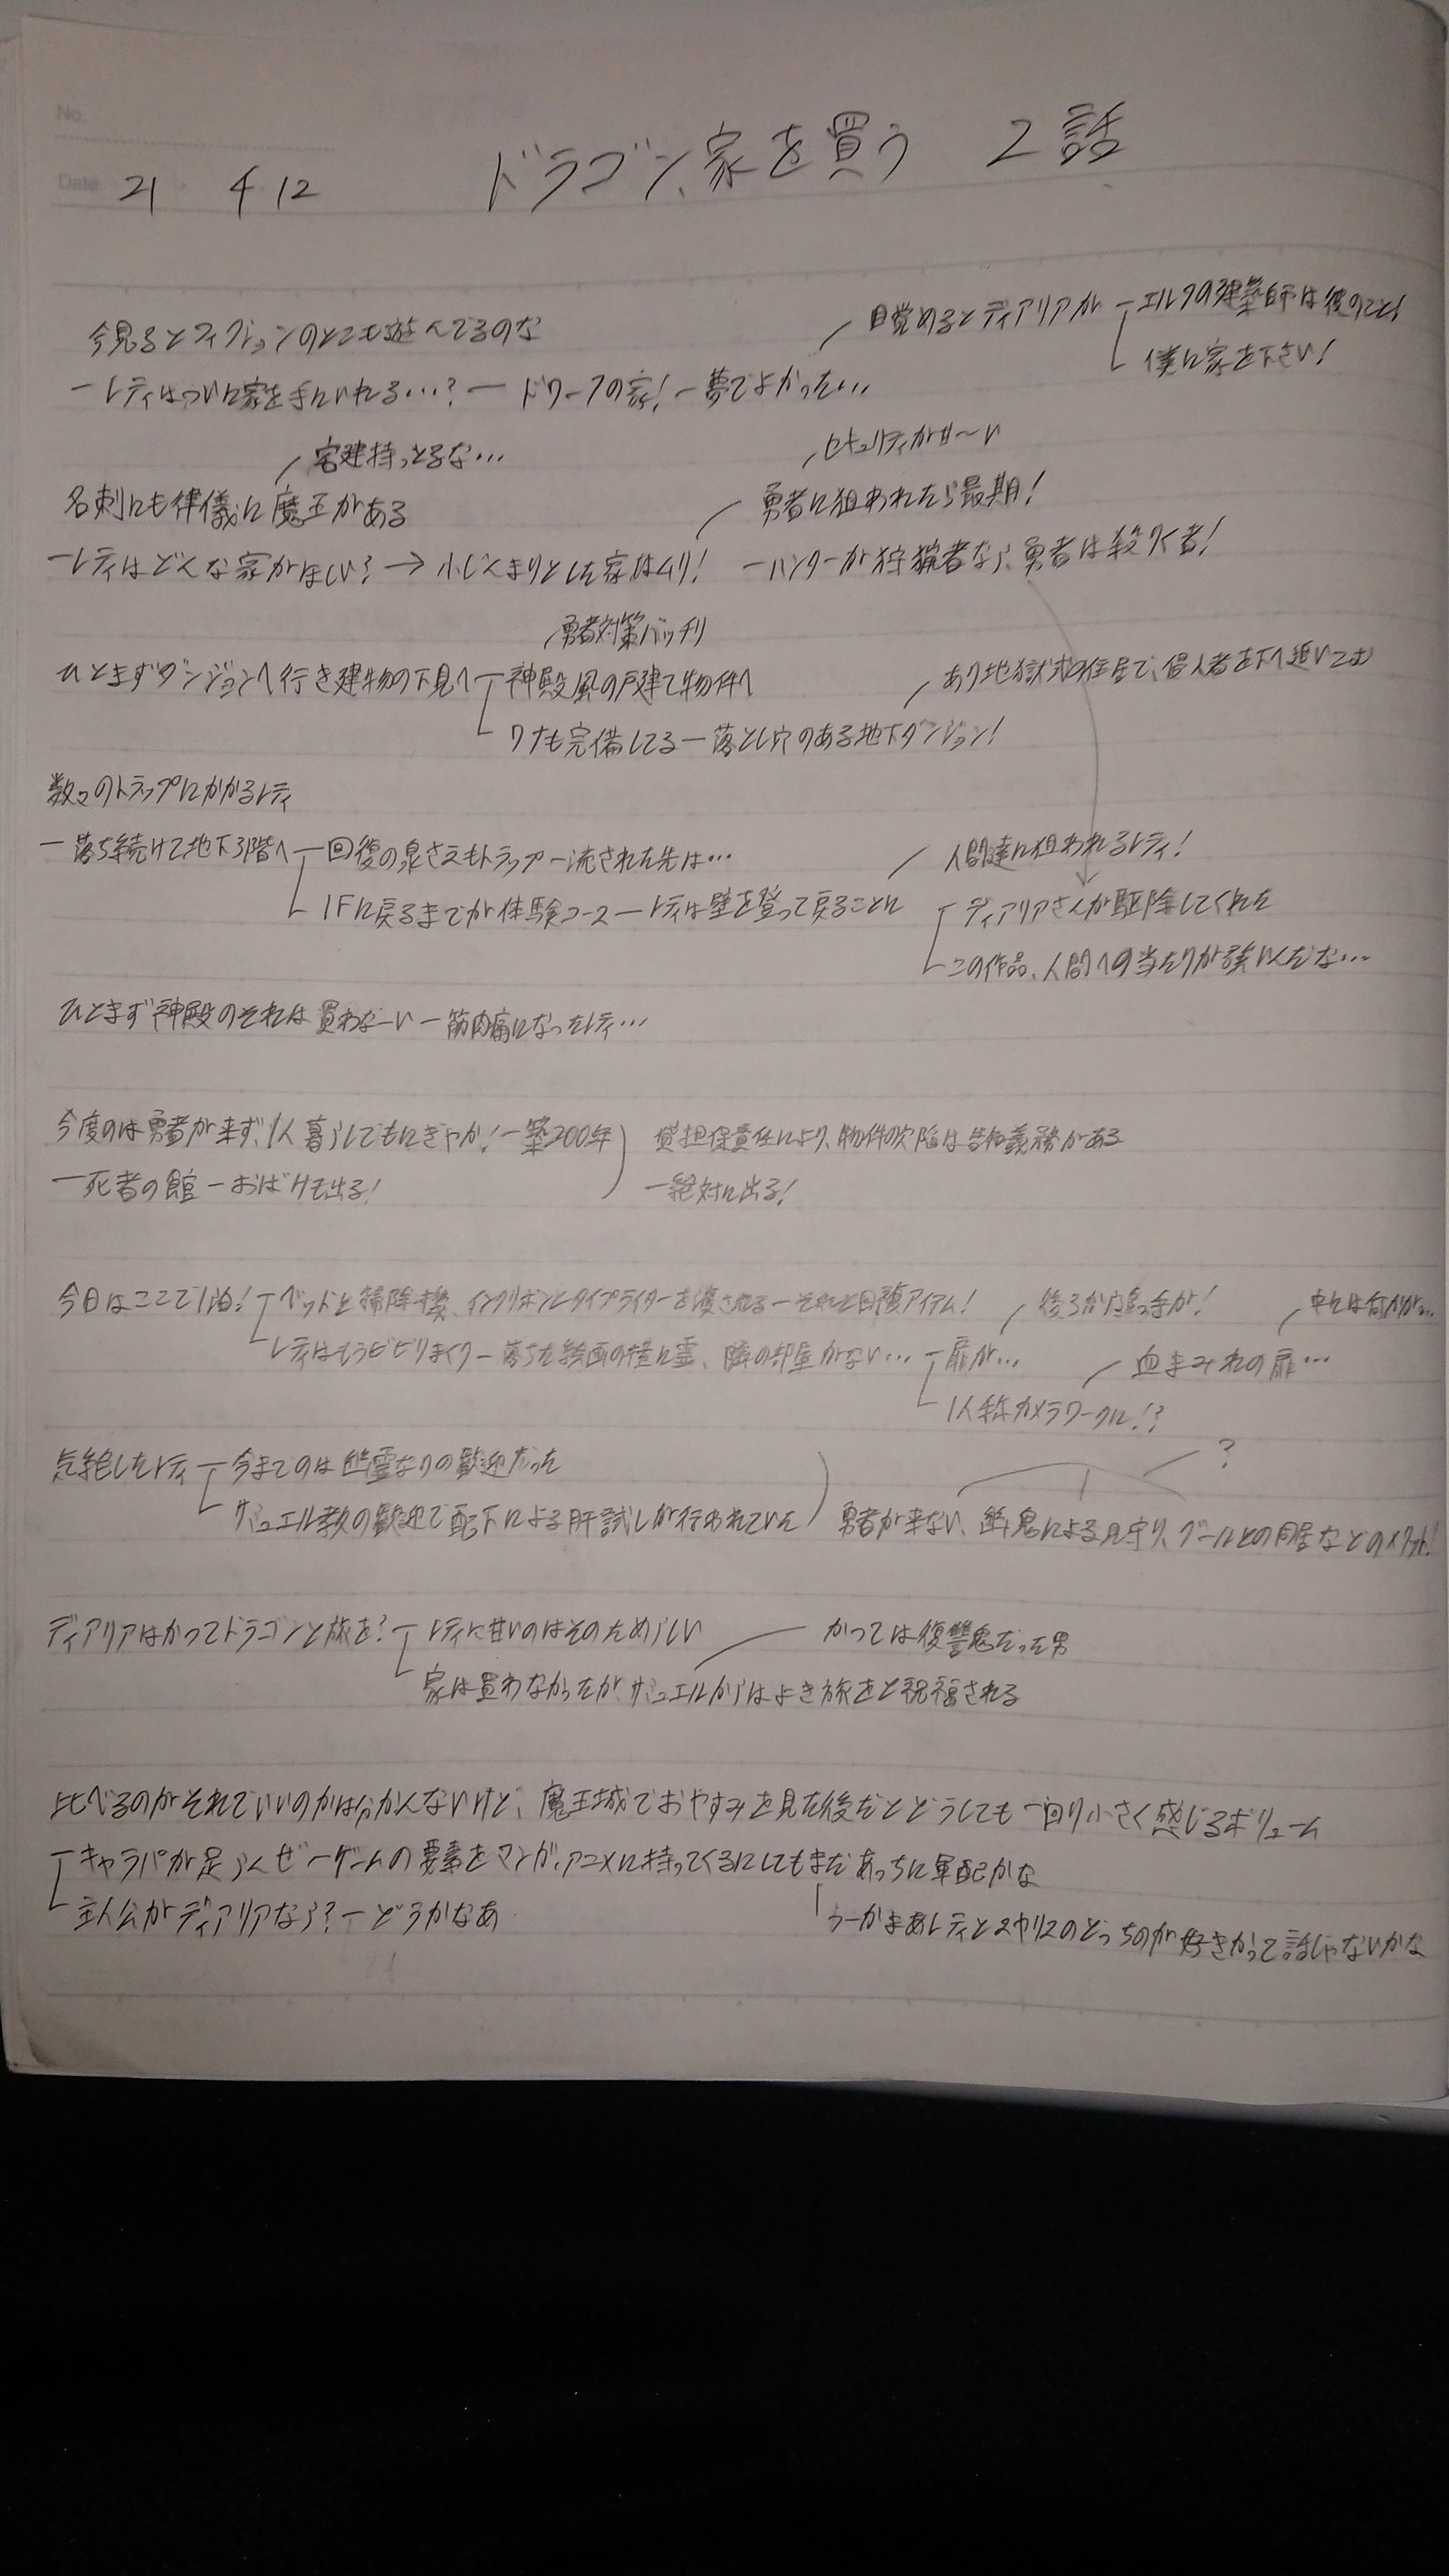 No.
Date 21 4 12
ドラゴン、家を買う 2話
今見るとフィクションのとこも遊んでるのな
目覚めるとディアリアが
エルフの建築師は彼のこと!
僕に家を下さい!
レティはついに家を手にいれる…? ー ドワーフの家! ー 夢でよかった…
宅建持っとるな…
セキュリティが甘〜い
名刺にも律儀に魔王がある
勇者に狙われたら最期!
ーレティはどんな家がほしい? → 小じんまりとした家はムリ! ーハンターが狩猟者なら、勇者は殺りく者!
勇者対策バッチリ
ひとまずダンジョンへ行き建物の下見へ
神殿風の戸建て物件へ
あり地獄式の住居で、侵入者を下へ追いこむ
ワナも完備してるー落とし穴のある地下ダンジョン!
数々のトラップにかかるレティ
ー落ち続けて地下3階へ
回復の泉さえもトラップー流された先は…
人間達に狙われるレティ!
1Fに戻るまでが体験コースーレティは壁を登って戻ることに
ディアリアさんが駆除してくれた
この作品、人間への当たりが強いんだな…
ひとまず神殿のそれは買わなーいー筋肉痛になったレティ…
今度のは勇者が来ず、1人暮らしでもにぎやか!ー築200年
担保責任により、物件の欠陥は告知義務がある
ー死者の館ーおばけも出る!
ー絶対に出る!
今日はここで1泊!
ベッドと掃除機、インクリボンとタイプライターを渡されるーそれと回復アイテム!
後ろから真っ手が!
中には何かが…
レティはもうビビりまくりー落ちた絵画の裡に霊、隣の部屋がない…
扉が…
血まみれの扉…
1人称カメラワークに!?
気絶したレティ
今までのは幽霊なりの歓迎だった
?
サミュエル教の歓迎で配下による肝試しが行われていた
勇者が来ない、幽鬼による見守り、グールとの同居などのメリット!
ディアリアはかつてドラゴンと旅を?
レティに甘いのはそのためらしい
かつては復讐鬼だった男
家は買わなかったが、サミュエルからはよき旅をと祝福される
比べるのがそれでいいのかは分かんないけど、魔王城でおやすみを見た後だとどうしても一回り小さく感じるボリューム
キャラパが足らんぜーゲームの要素をマンガ、アニメに持ってくるにしてもまだあっちに軍配かな
主人公がディアリアなら?ーどうかなあ
うーかまあレティとスヤリスのどっちのが好きかって話じゃないかな